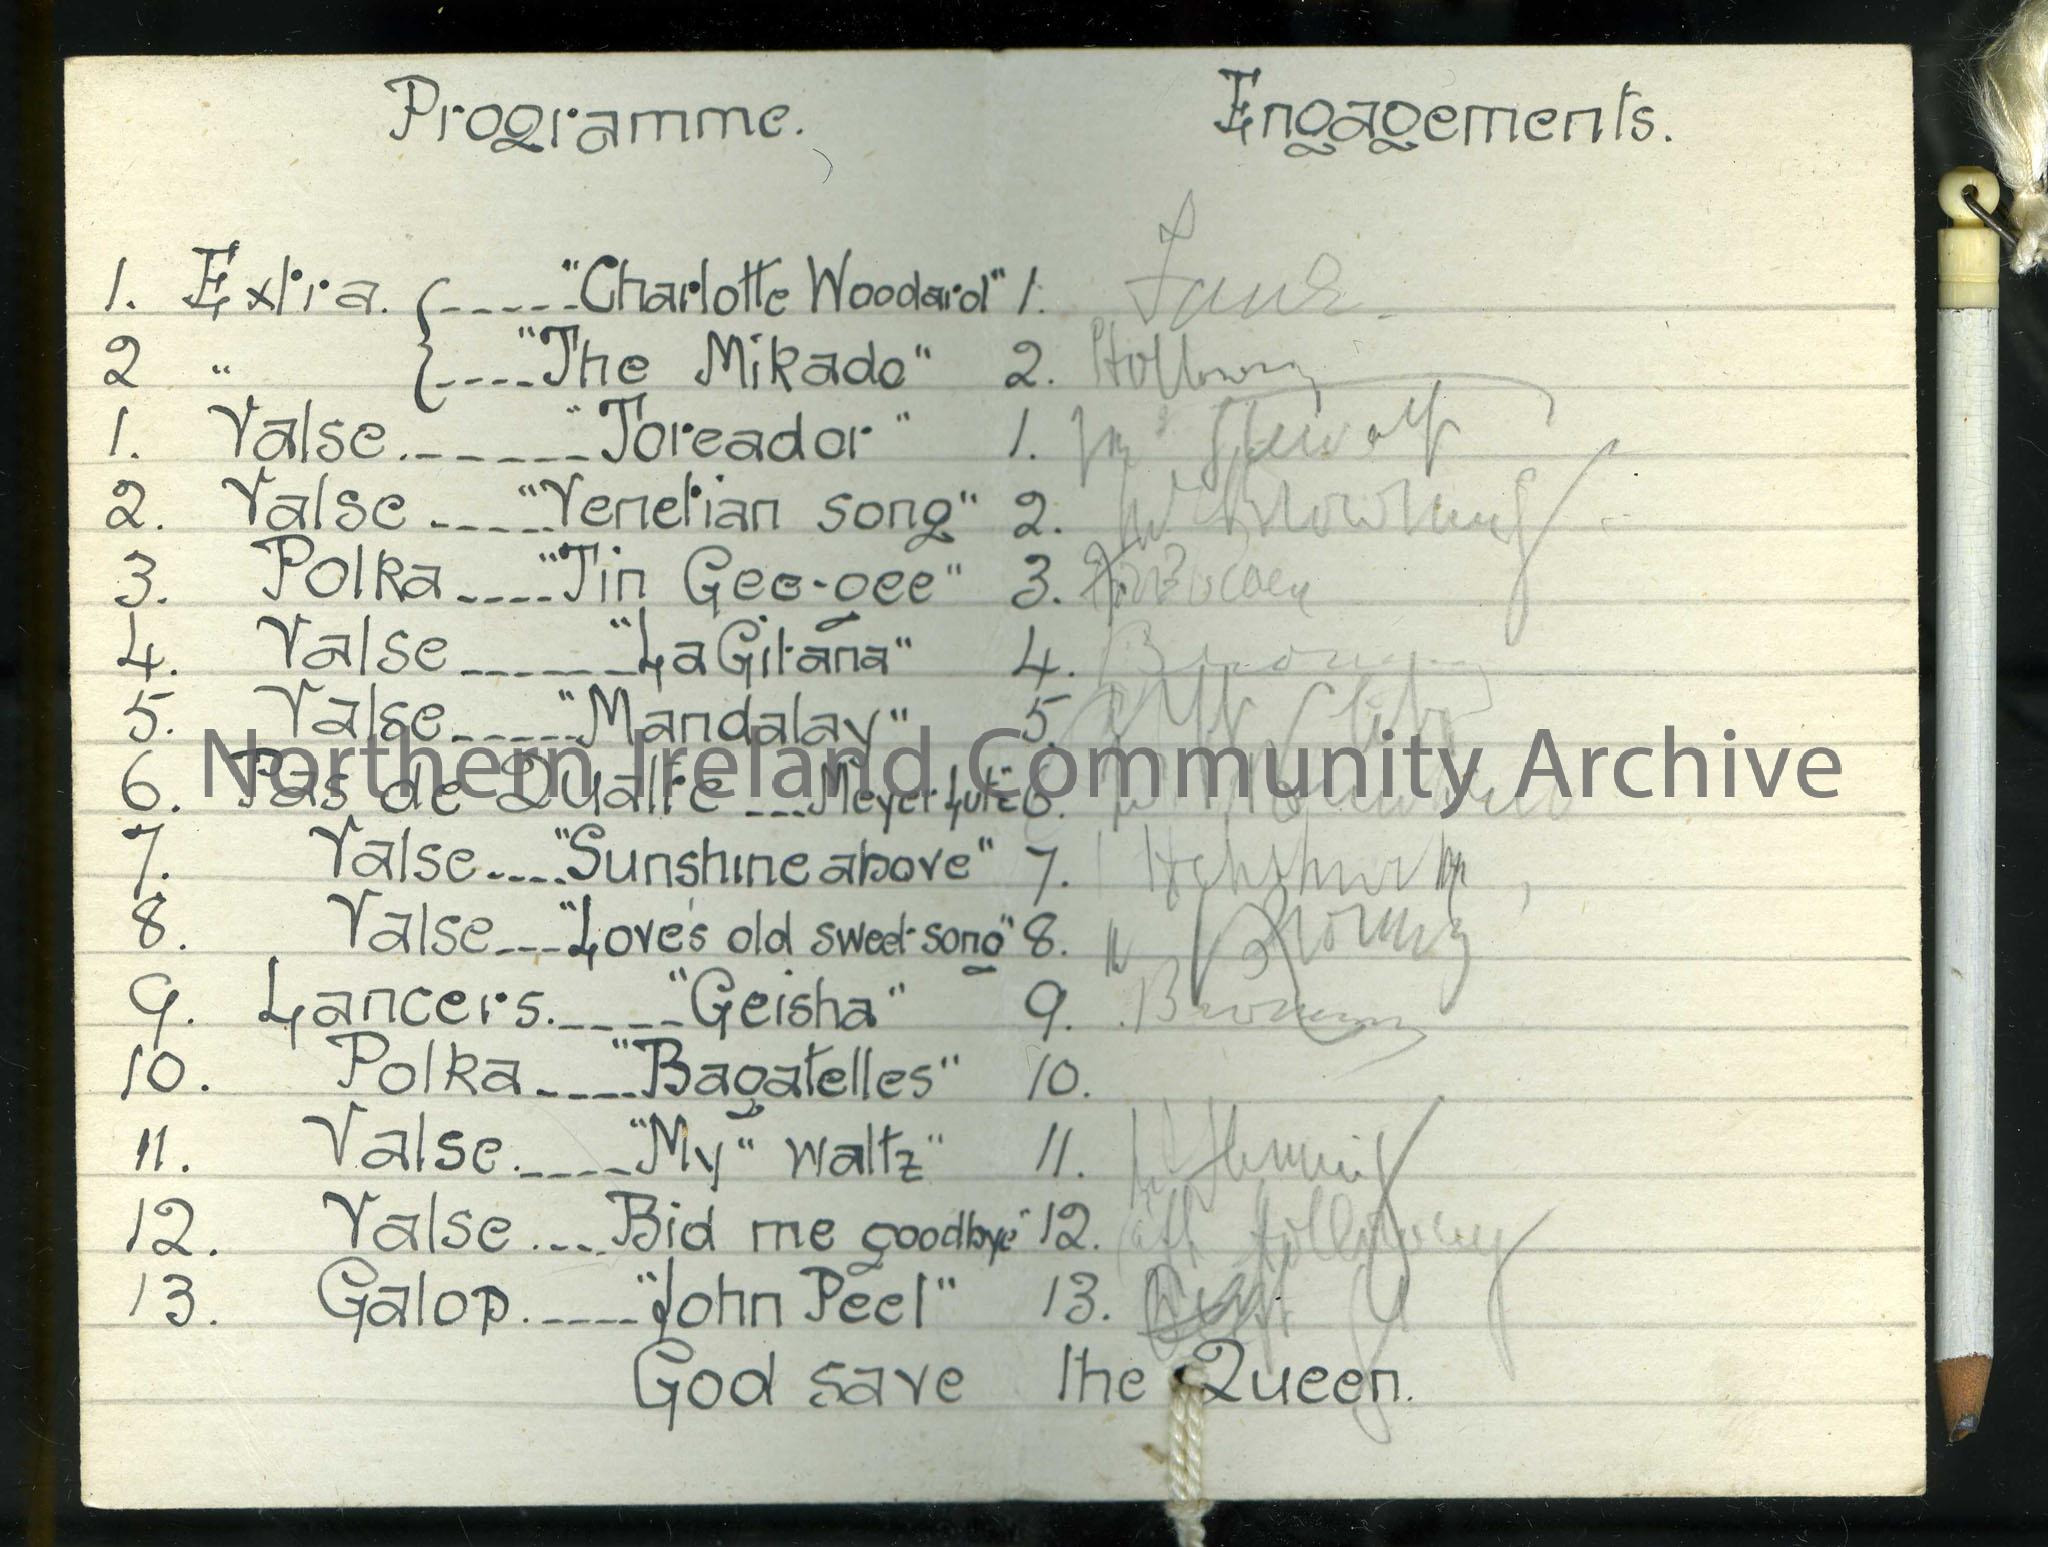 Programme. Engagements.
1. Extra. { ----- "Charlotte Woodard" 1.
2 " { ---- "The Mikado" 2. Holloway
1. Valse ------- "Toreador" 1.
2. Valse ----- "Venetian song" 2. Browning
3. Polka ---- "Tin Gee-gee" 3.
4. Valse ------ "La Gitana" 4. Browning
5. Valse ----- "Mandalay" 5.
Northern Ireland Community Archive
6. Pas de Quatre --- Meyer Lutz 6.
7. Valse ---- "Sunshine above" 7.
8. Valse --- "Love's old sweet song" 8. Browning
9. Lancers. ---- "Geisha" 9. Browning
10. Polka ---- "Bagatelles" 10.
11. Valse. ---- "My" waltz" 11.
12. Valse ... Bid me goodbye" 12. Holloway
13. Galop. ---- "John Peel" 13.
God save the Queen.